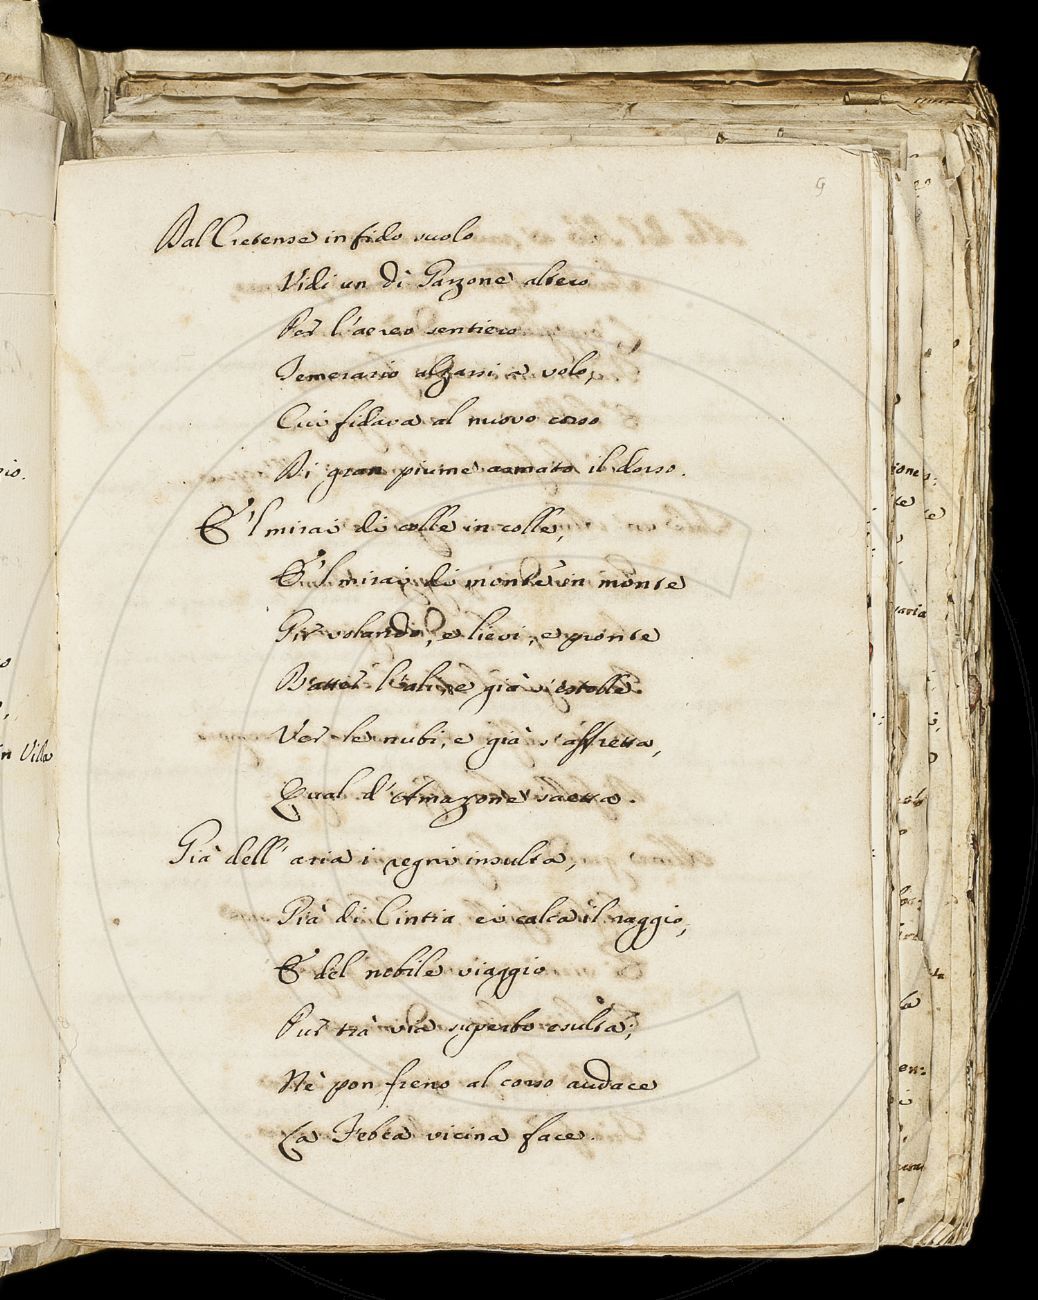 9
Dal Cretense infido suolo
Vidi un dì Garzone altero
Per l'aereo sentiero
Temerario alzarsi a volo,
Cui fidava al nuovo corso
Di gran piume armato il dorso.
E 'l mirai di colle in colle,
E 'l mirai di monte in monte
Gir volando, e lievi, e pronte
Batter l'ali, e già s'estolle
Ver le nubi, e già s'affretta,
Qual d'Amazone saetta.
Già dell'aria i regni insulta,
Già di Cintia ei calca il raggio,
E del nobile viaggio
Pur trà via superbo esulta;
Nè pon freno al corso audace
La Febea vicina face.
in Villa